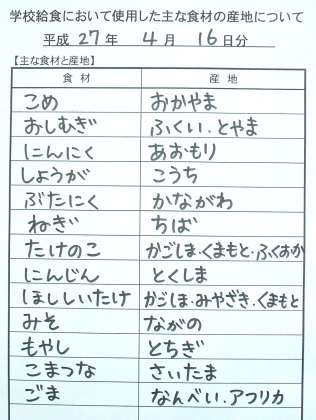 学校給食において使用した主な食材の産地について
平成 27 年 4 月 16 日分
【主な食材と産地】
食材 産地
こめ おかやま
おしむぎ ふくい・とやま
にんにく あおもり
しょうが こうち
ぶたにく かながわ
ねぎ ちば
たけのこ かごしま・くまもと・ふくおか
にんじん とくしま
ほししいたけ かごしま・みやざき・くまもと
みそ ながの
もやし とちぎ
こまつな さいたま
ごま なんべい・アフリカ